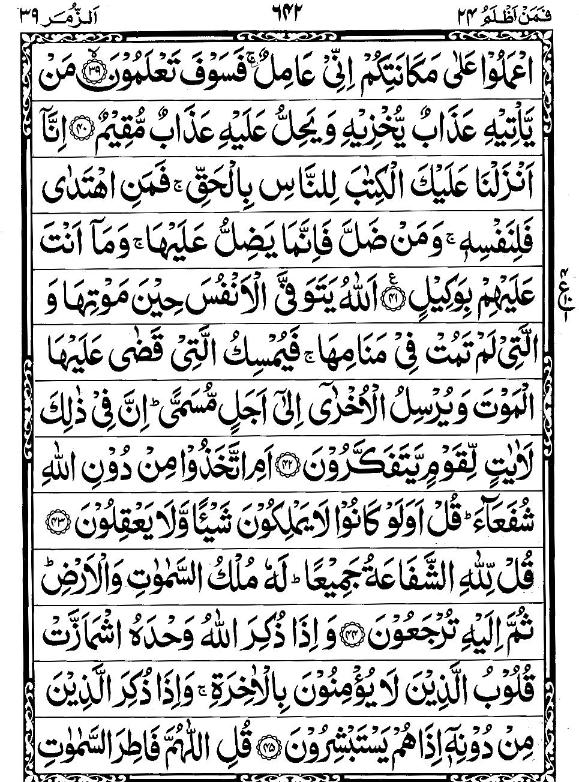 فَمَنْ اَظْلَمُ ٢٤ ٦٤٢ اَلزُّمَر ٣٩
اعْمَلُوْا عَلٰى مَكَانَتِكُمْ اِنِّيْ عَامِلٌ ۚ فَسَوْفَ تَعْلَمُوْنَ ۙ﴿٣٩﴾ مَنْ
يَّاْتِيْهِ عَذَابٌ يُّخْزِيْهِ وَيَحِلُّ عَلَيْهِ عَذَابٌ مُّقِيْمٌ ﴿٤٠﴾ اِنَّاۤ
اَنْزَلْنَا عَلَيْكَ الْكِتٰبَ لِلنَّاسِ بِالْحَقِّ ۚ فَمَنِ اهْتَدٰى
فَلِنَفْسِهٖ ۚ وَمَنْ ضَلَّ فَاِنَّمَا يَضِلُّ عَلَيْهَا ۚ وَمَاۤ اَنْتَ
عَلَيْهِمْ بِوَكِيْلٍ ﴿٤١﴾ۧ اَللّٰهُ يَتَوَفَّى الْاَنْفُسَ حِيْنَ مَوْتِهَا وَ
الَّتِيْ لَمْ تَمُتْ فِيْ مَنَامِهَا ۚ فَيُمْسِكُ الَّتِيْ قَضٰى عَلَيْهَا
الْمَوْتَ وَيُرْسِلُ الْاُخْرٰۤى اِلٰۤى اَجَلٍ مُّسَمًّى ؕ اِنَّ فِيْ ذٰلِكَ
لَاٰيٰتٍ لِّقَوْمٍ يَّتَفَكَّرُوْنَ ﴿٤٢﴾ اَمِ اتَّخَذُوْا مِنْ دُوْنِ اللّٰهِ
شُفَعَآءَ ؕ قُلْ اَوَلَوْ كَانُوْا لَا يَمْلِكُوْنَ شَيْـًٔا وَّلَا يَعْقِلُوْنَ ﴿٤٣﴾
قُلْ لِّلّٰهِ الشَّفَاعَةُ جَمِيْعًا ؕ لَهٗ مُلْكُ السَّمٰوٰتِ وَالْاَرْضِ ؕ
ثُمَّ اِلَيْهِ تُرْجَعُوْنَ ﴿٤٤﴾ وَاِذَا ذُكِرَ اللّٰهُ وَحْدَهُ اشْمَاَزَّتْ
قُلُوْبُ الَّذِيْنَ لَا يُؤْمِنُوْنَ بِالْاٰخِرَةِ ۚ وَاِذَا ذُكِرَ الَّذِيْنَ
مِنْ دُوْنِهٖۤ اِذَا هُمْ يَسْتَبْشِرُوْنَ ﴿٤٥﴾ قُلِ اللّٰهُمَّ فَاطِرَ السَّمٰوٰتِ